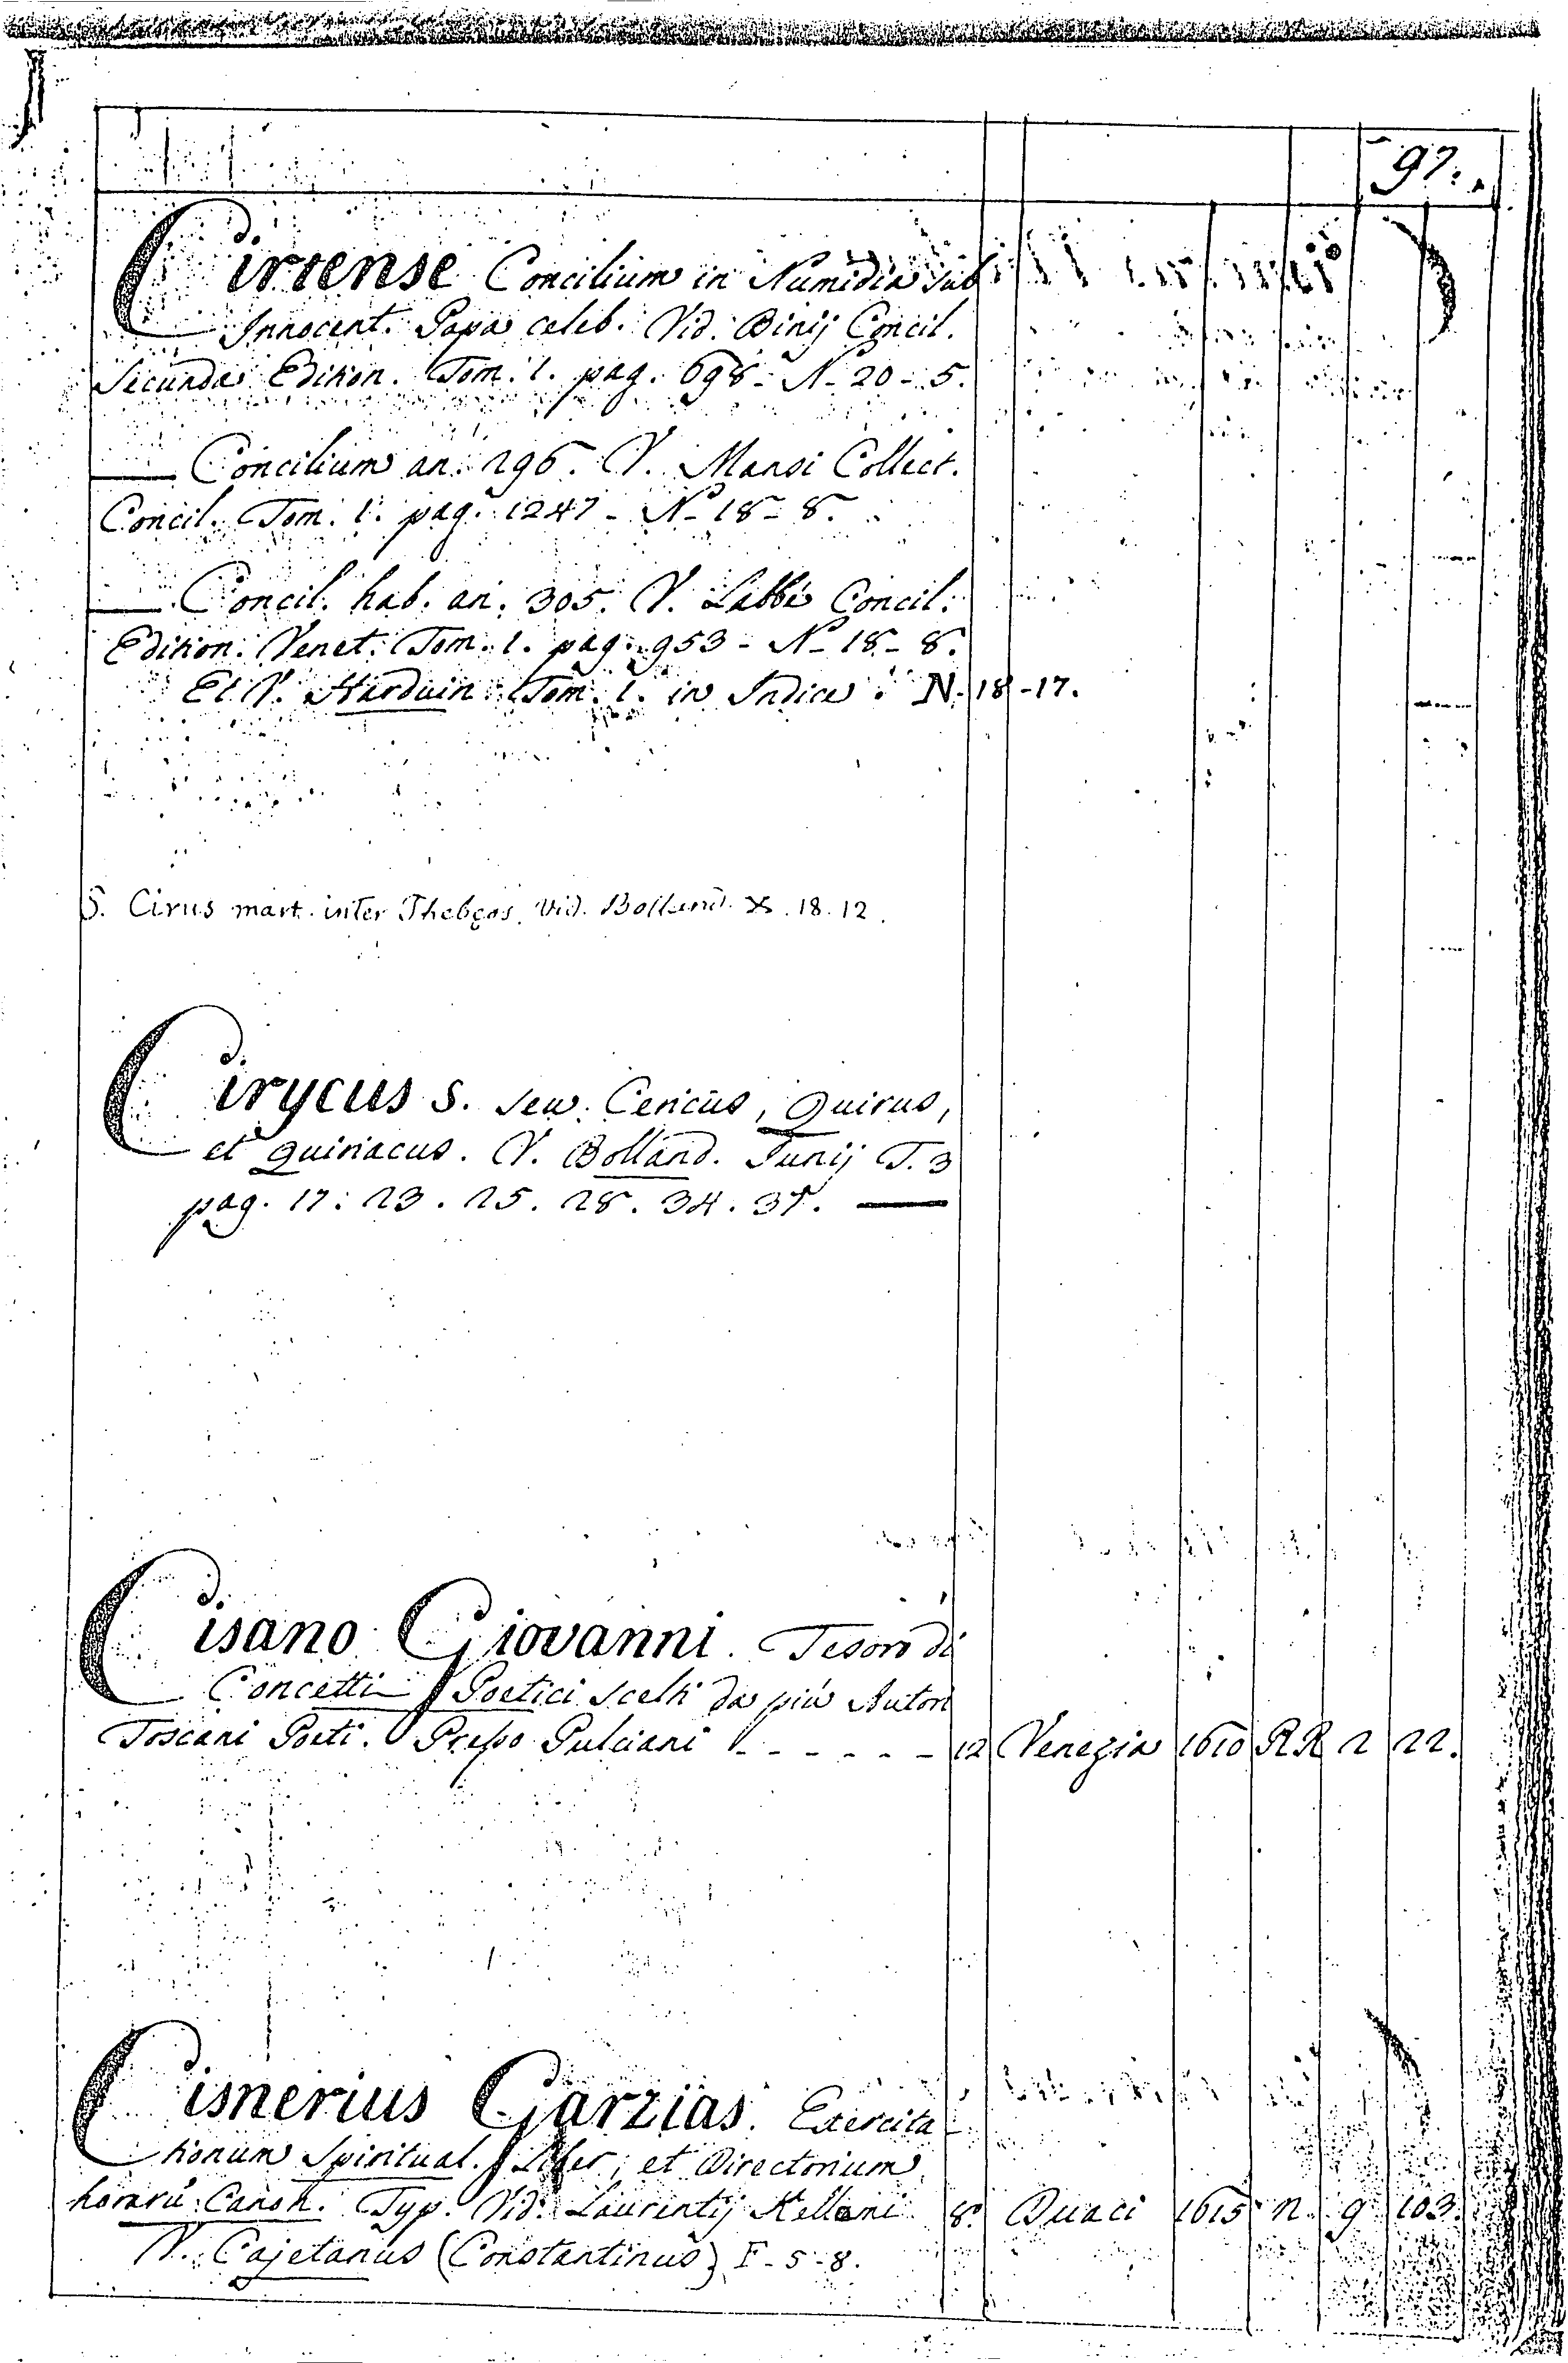 97.
Cirtense Concilium in Numidia sub
Innocent. Papa celeb. Vid. Binij Concil.
Secunda Edition. Tom. 1. pag. 698 - N - 20 - 5.
— Concilium an. 296. V. Mansi Collect.
Concil. Tom. 1. pag. 1247 - N - 18 - 8.
— Concil. hab. an. 305. V. Labbè Concil.
Edition. Venet. Tom. 1. pag. 953 - N - 18 - 8.
Et V. Harduin. Tom. 1. in Indice. N. 18 - 17.
S. Cirus mart. inter Thebęos. Vid. Bolland. X. 18. 12.
Cirycus S. seu Cericus, Quirus,
et Quiriacus. V. Bolland. Junij T. 3
pag. 17. 23. 25. 28. 34. 37. —
Cisano Giovanni. Tesoro di
Concetti Poetici scelti da più Autori
Toscani Poeti. Presso Pulciani - - - - - - 12 Venezia 1610 RR 2 22.
Cisnerius Garzias. Exercita
tionum Spiritual. Liber, et Directorium
horarū Canon. Typ. Vid. Laurentij Kellani 8. Duaci 1615 n. 9 103.
V. Cajetanus (Constantinus) F - 5 - 8.